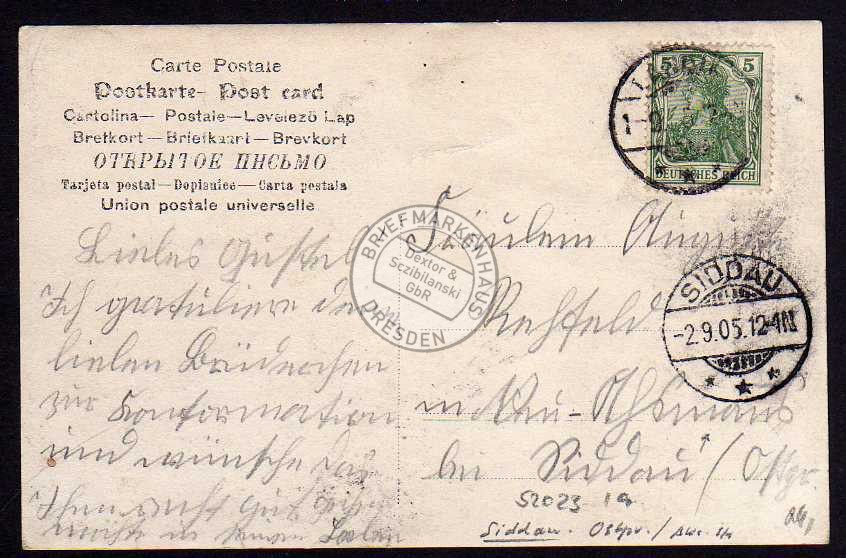 Carte Postale
Postkarte- Post card
Cartolina— Postale—Levelező Lap
Brefkort—Briefkaart—Brevkort
ОТКРЫТОЕ ПИСЬМО
Tarjeta postal—Dopisnice—Carta postala
Union postale universelle
5 5
DEUTSCHES REICH
SIDDAU
-2.9.05.12-1N
BRIEFMARKENHAUS
Dextor &
Sczibilanski
GbR
DRESDEN
Liebes Gustel
Ich gratuliere
lieben Brüderchen
zur Konformation
und wünsche das
Ihm recht gut
in seinem Leben
Fräulein August
Rehfeld
in Neu-
bei Siddau / (Ostpr.
52023
Siddau. Ostpr. /